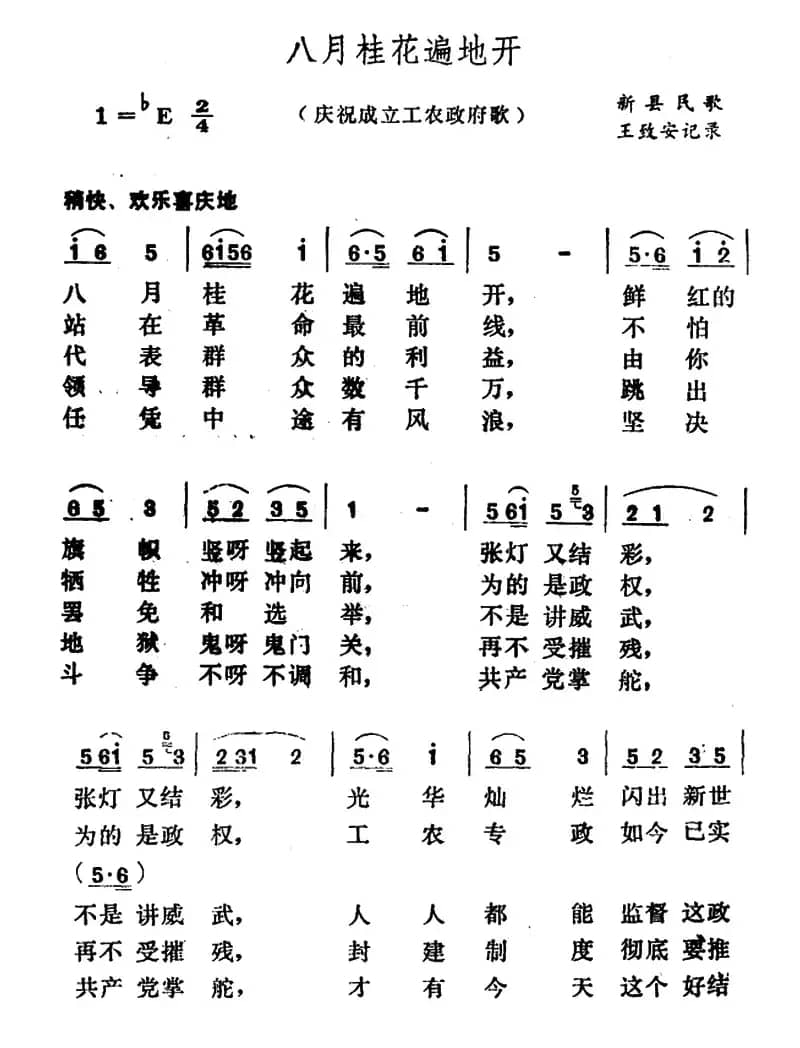 八月桂花遍地开
1=♭E 2/4 （庆祝成立工农政府歌） 新县民歌
王致安记录
稍快、欢乐喜庆地
i 6 5 | 6i56 i | 6·5 6i | 5 - | 5·6 i2 |
八月桂花遍地开，鲜红的
站在革命最前线，不怕
代表群众的利益，由你
领导群众数千万，跳出
任凭中途有风浪，坚决
6 5 3 | 5 2 3 5 | 1 - | 561 5 53 | 2 1 2 |
旗帜竖呀竖起来，张灯又结彩，
牺牲冲呀冲向前，为的是政权，
罢免和选举，不是讲威武，
地狱鬼呀鬼门关，再不受摧残，
斗争不呀不调和，共产党掌舵，
561 5 53 | 231 2 | 5·6 i | 6 5 3 | 5 2 3 5 |
张灯又结彩，光华灿烂闪出新世
为的是政权，工农专政如今已实
（5·6）
不是讲威武，人人都能监督这政
再不受摧残，封建制度彻底要推
共产党掌舵，才有今天这个好结